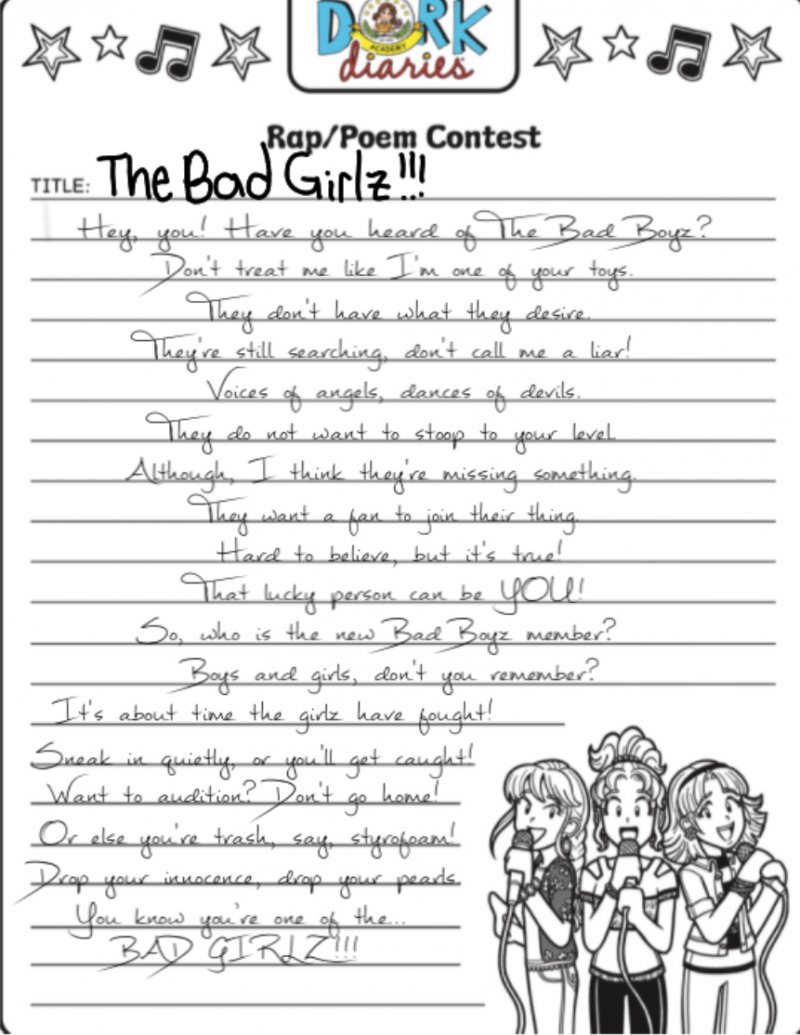 DORK
ACADEMY
diaries
Rap/Poem Contest
TITLE: The Bad Girlz!!!
Hey, you! Have you heard of The Bad Boyz?
Don't treat me like I'm one of your toys.
They don't have what they desire.
They're still searching, don't call me a liar!
Voices of angels, dances of devils.
They do not want to stoop to your level.
Although, I think they're missing something.
They want a fan to join their thing.
Hard to believe, but it's true!
That lucky person can be YOU!
So, who is the new Bad Boyz member?
Boys and girls, don't you remember?
It's about time the girlz have fought!
Sneak in quietly, or you'll get caught!
Want to audition? Don't go home!
Or else you're trash, say, styrofoam!
Drop your innocence, drop your pearls.
You know you're one of the...
BAD GIRLZ!!!